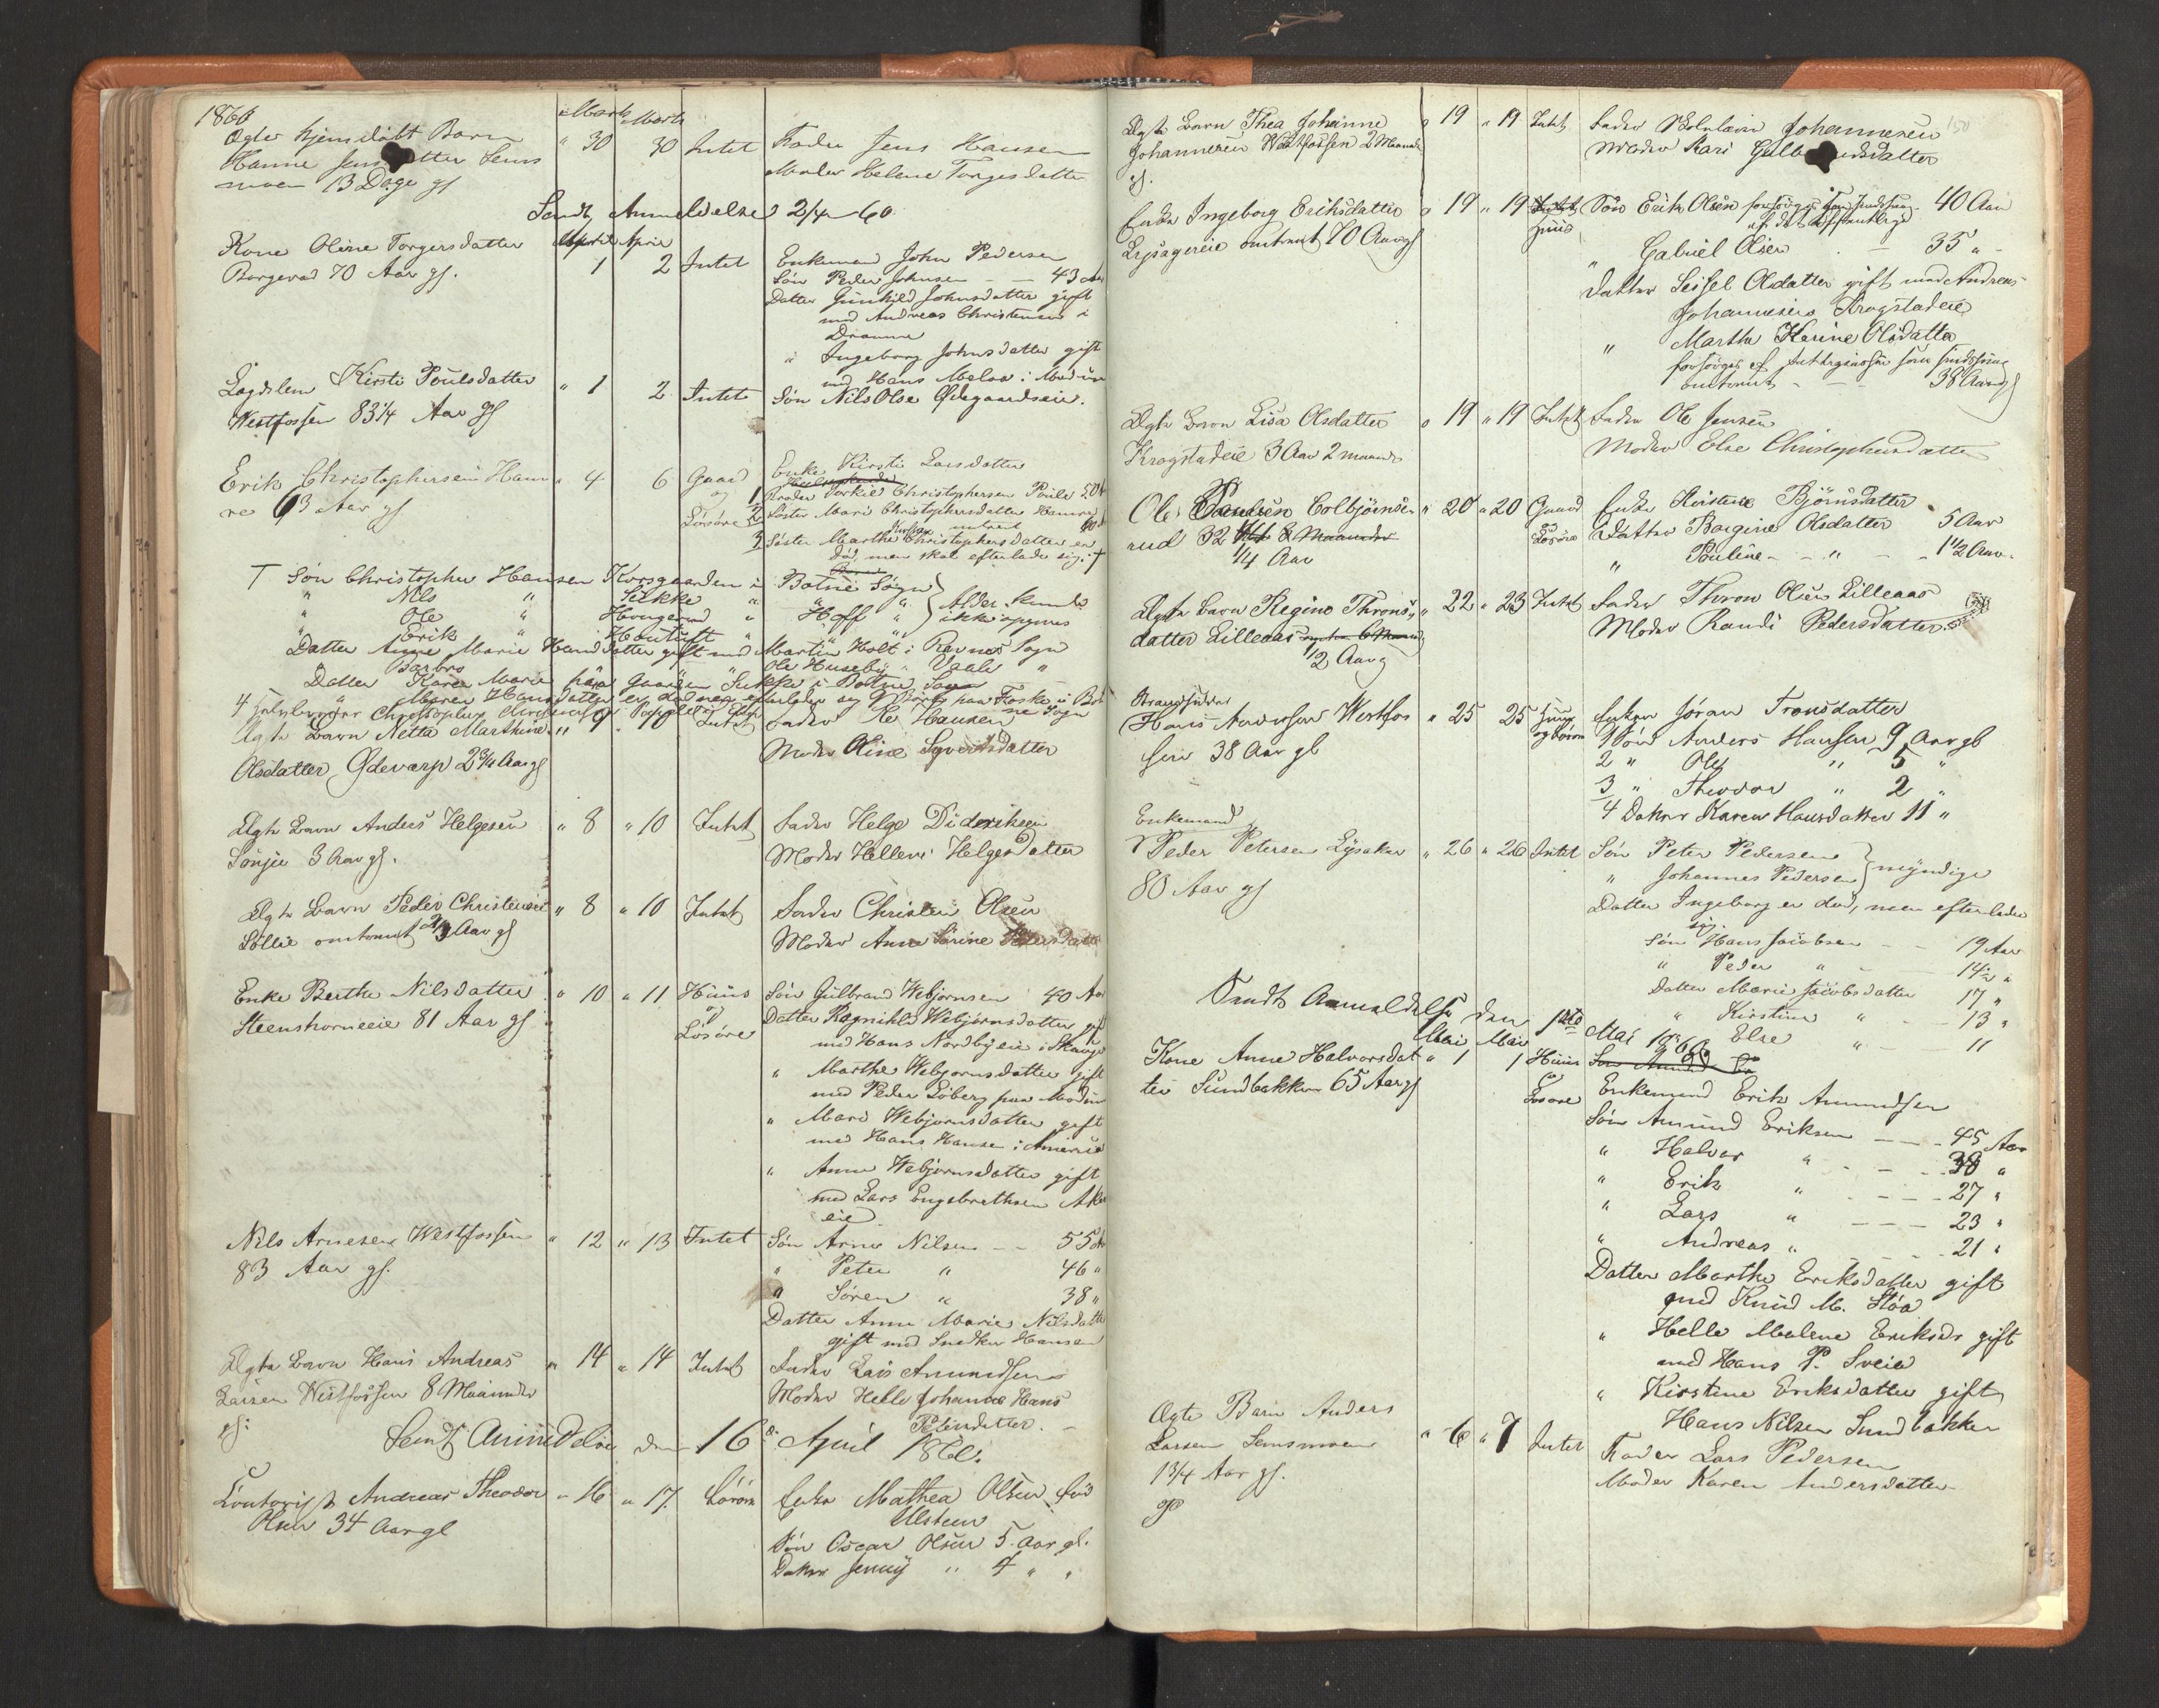 1860 Marts Marts
Ægte hjemdøbt Barn " 30 30 Intet Fader Jens Hansen
Hanne Jensdatter Sems Moder Helene Torgersdatter
moen 13 Dage gl
Sendt Anmeldelse 2/4 60
April April
Kone Oline Torgersdatter 1 2 Intet Enkemand John Pedersen
Borgerud 70 Aar gl. Søn Peder Johnsen - - 43 Aar
Datter Gunhild Johnsdatter gift
med Andreas Christensen i
Drammen
" Ingeborg Johnsdatter gift
med Hans Meløe i Modum
Lægdslem Kirsti Poulsdatter " 1 2 Intet Søn Nils Olse Ødegaardseie.
Westfossen 83 1/4 Aar gl
Erik Christophersen Ham " 4 6 Gaard Enke Kirsti Larsdatter
re 63 Aar gl og 1 Broder Torkild Christophersen
Løsøre 2 Søster Mari Christophersdatter Hamre
3 Søster Marthe Christophersdatter er
død men skal efterlade sig: †
† Søn Christopher Hansen Korsgaarden i Botne Sogn
" Nils " Sukke " " "
" Ole " Hougerud " Hoff " Alder kunde
" Erik " " " " ikke opgives
Datter Anne Marie Hansdatter gift med Martin Holt i Ravnes Sogn
" Barbro " " Ole Huseby " Vaale "
Datter Karen Marie paa Gaarden Sukke i Botne Sogn
Ægte Barn Netta Marthine " 9 " 10 Intet Fader Ole Hansen
Olsdatter Ødevarp 2 3/4 Aar gl Moder Oline Syvertsdatter
Ægte Barn Anders Helgesen " 8 " 10 Intet Fader Helge Dideriksen
3 Aar gl. Moder Hellene Helgesdatter
Ægte Barn Peder Christensen " 8 " 10 Intet Fader Christen Olsen
Søllie omtrent 2/3 Aar gl Moder Anne Sørine Pedersdatter
Enke Berthe Nilsdatter " 10 " 11 Huus Søn Gulbrand Webjørnsen 40 Aar
Steenshorneeie 81 Aar gl og Datter Ragnhild Webjørnsdatter gift
Løsøre med Hans Nordbyeie i Skauge
" Marthe Webjørnsdatter gift
med Peder Loberg paa Modum
" Mari Webjørnsdatter gift
med Hans Hansen i America
" Anne Webjørnsdatter gift
med Lars Engebrethsen Aker
eie
Nils Arnesen Westfossen " 12 " 13 Intet Søn Arne Nilsen - - 55 Aar
83 Aar gl. " Peter " 46 "
" Søren " 38 "
Datter Anne Marie Nilsdatter
gift med Snedker Hansen
Ægte Barn Hans Andreas " 14 " 14 Intet Fader Lars Amundsen
Larsen Westfossen 8 Maaneder Moder Helle Johanne Hans
gl: Petersdatter. -
Sendt Anmeldelse den 16de April 1860.
Contorist Andreas Theodor " 16 " 17 Løsøre Enke Mathea Olsen født
Olsen 34 Aar gl Ulsteen
Søn Oscar Olsen 5 Aar gl.
Datter Jenny " 4 " "
Ægte Barn Thea Johanne " 19 " 19 Intet Fader Johannesen 150
Johannesen Westfossen 2 Maaneder Moder Kari Gulbrandsdatter
gl.
Enke Ingeborg Eriksdatter " 19 " 19 Intet Søn Erik Olsen forsørges 40 Aar
Lysagereie omtrent 70 Aar gl Huus af det offentlige
" Gabriel Olsen - 35 "
Datter Sissel Olsdatter gift med Andreas
Johannesen Krogstadeie
" Marthe Karine Olsdatter
omtrent - - - 38 Aar gl
Ægte Barn Lisa Olsdatter " 19 " 19 Intet Fader Ole Jensen
Krogstadeie 3 Aar 2 Maaneder Moder Else Christophersdatter
Ole Paulsen Colbjørnse " 20 " 20 Gaard Enke Kirstine Bjørnsdatter
rud 32 8 Maaneder og Datter Bergine Olsdatter 5 Aar
1/4 Aar Løsøre " Pauline - - " - - 1 1/2 Aar.
Ægte Barn Regine Throns " 22 " 23 Intet Fader Thron Olsen Lilleaas
datter Lilleaas Moder Randi Pedersdatter
1/2 Aar g
Strandsidder
Hans Andersen Westfos " 25 25 Huus Enken Jøran Tronsdatter
sen 38 Aar gl og Løsøre 1 Søn Anders Hansen 9 Aar gl
2 " Ole " 5 "
3 " Theodor " 2 "
4 Datter Karen Hansdatter 11 "
Enkemand
Peder Petersen Lysaker " 26 " 26 Intet Søn Peter Pedersen
80 Aar gl " Johannes Pedersen } myndige
Datter Ingeborg er død, men efterlader
sig.
Søn Hans Jacobsen - - 19 Aar
" Peder " - 14 1/2 "
Datter Marie Jacobsdatter 17 "
" Kirstine " - - 13 "
" Else " - 11
Sendt Anmeldelse den 1ste Mai 1860
Mai Mai
Kone Anne Halvorsdat " 1 1 Huus Søn Amund
ter Sundbakken 65 Aar gl og Enkemand Erik Amundsen
Løsøre Søn Amund Eriksen - - - 45 Aar
" Halvor " - - - 38 "
" Erik " - - - 27 "
" Lars " - - - 23 "
" Andreas " - - - 21 "
Datter Marthe Eriksdatter gift
med Knud M. Støa
" Helle Malene Eriksdr gift
med Hans P. Sveia
" Kirstine Eriksdatter gift
Hans Nilsen Sundbakken
Ægte Barn Anders " 6 " 7 Intet Fader Lars Pedersen
Larsen Semsmoen Moder Karen Andersdatter
1 3/4 Aar gl.